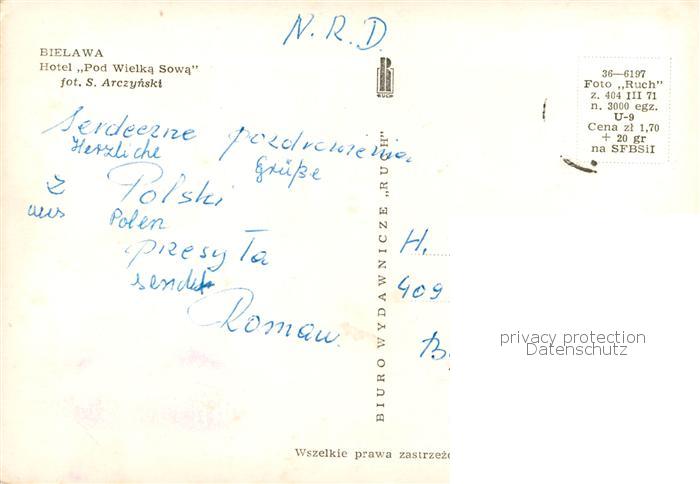 N.R.D.
BIELAWA
Hotel „Pod Wielką Sową"
fot. S. Arczyński
RUCH
36—6197
Foto „Ruch"
z. 404 III 71
n. 3000 egz.
U-9
Cena zł 1,70
+ 20 gr
na SFBSiI
Serdeczne pozdrowienia
Herzliche Grüße
z Polski
aus Polen
przesyła
sendet
Roman.
BIURO WYDAWNICZE „RUCH"
H.
409
privacy protection
Datenschutz
Wszelkie prawa